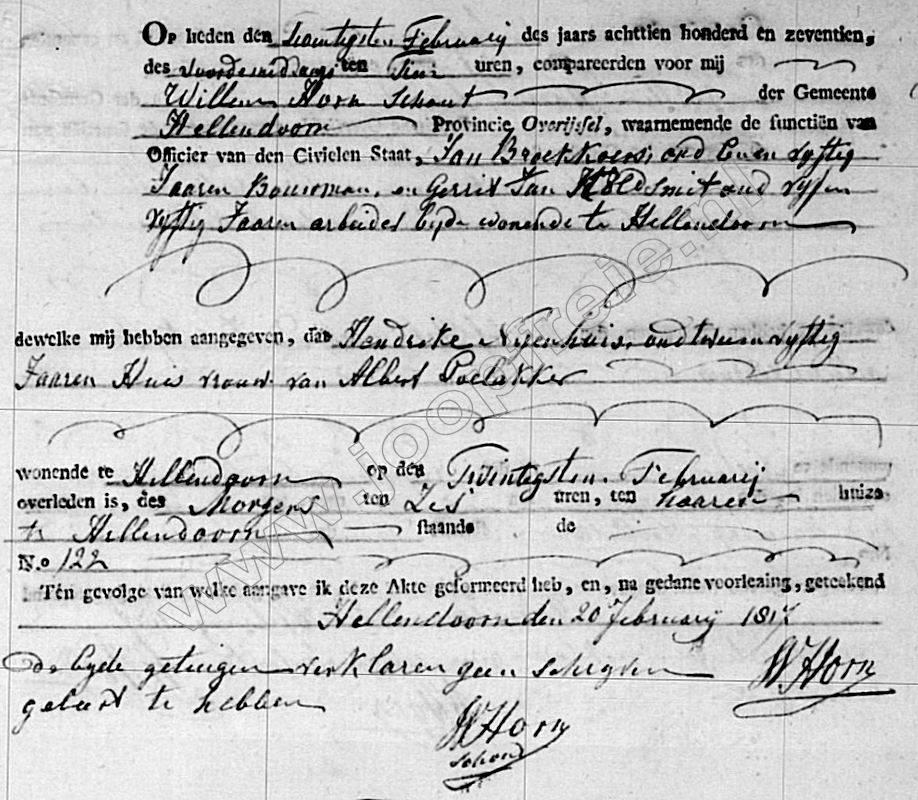 Op heden den twintigsten Februarij des jaars achttien honderd en zeventien,
des voordemiddags ten Tien uren, compareerden voor mij
Willem Horn Schout der Gemeente
Hellendoorn Provincie Overijssel, waarnemende de functiën van
Officier van den Civielen Staat, Jan oud vyftig
Jaaren Bouwman, en Gerrit Jan oud vyf en
vyftig Jaaren arbeider byde wonende te Hellendoorn
dewelke mij hebben aangegeven, dat Hendrike Nyenhuis, oud twee en vyftig
Jaaren Huis vrouw van Albert Poelakker
wonende te Hellendoorn op den Twintigsten Februarij
overleden is, des Morgens ten Zes uren, ten haaren huize
te Hellendoorn staande de
N.o 122
Ten gevolge van welke aangave ik deze Akte geformeerd heb, en, na gedane voorlezing, geteekend
Hellendoorn den 20 Februarij 1817
de byde getuigen verklaren geen schryven WHorn
geleert te hebben
WHorn
schout
www.joopfreie.nl